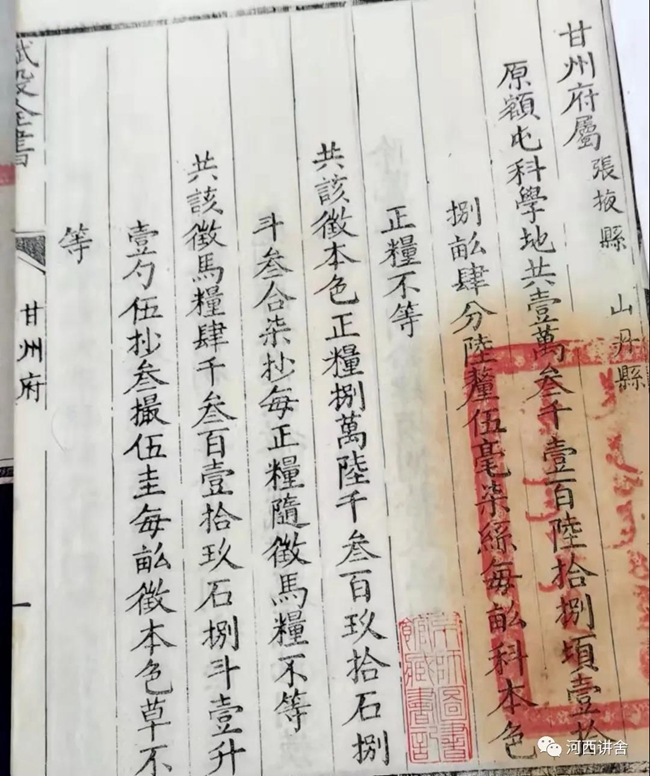 甘州府屬 張掖縣 山丹縣
原額屯科學地共壹萬叁千壹百陸拾捌頃壹拾
捌畝肆分陸釐伍毫柒絲每畝科本色
正糧不等
共該徵本色正糧捌萬陸千叁百玖拾石捌
斗叁合柒抄每正糧隨徵馬糧不等
共該徵馬糧肆千叁百壹拾玖石捌斗壹升
壹勺伍抄叁撮伍圭每畝徵本色草不
等
賦役全書
甘州府
一
京師圖書館藏書記
河西讲舍